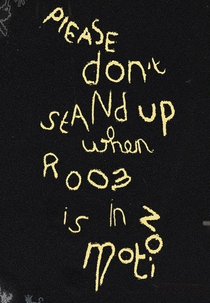 PLEASE
don't
STAND UP
when
ROOM
is in
motioN